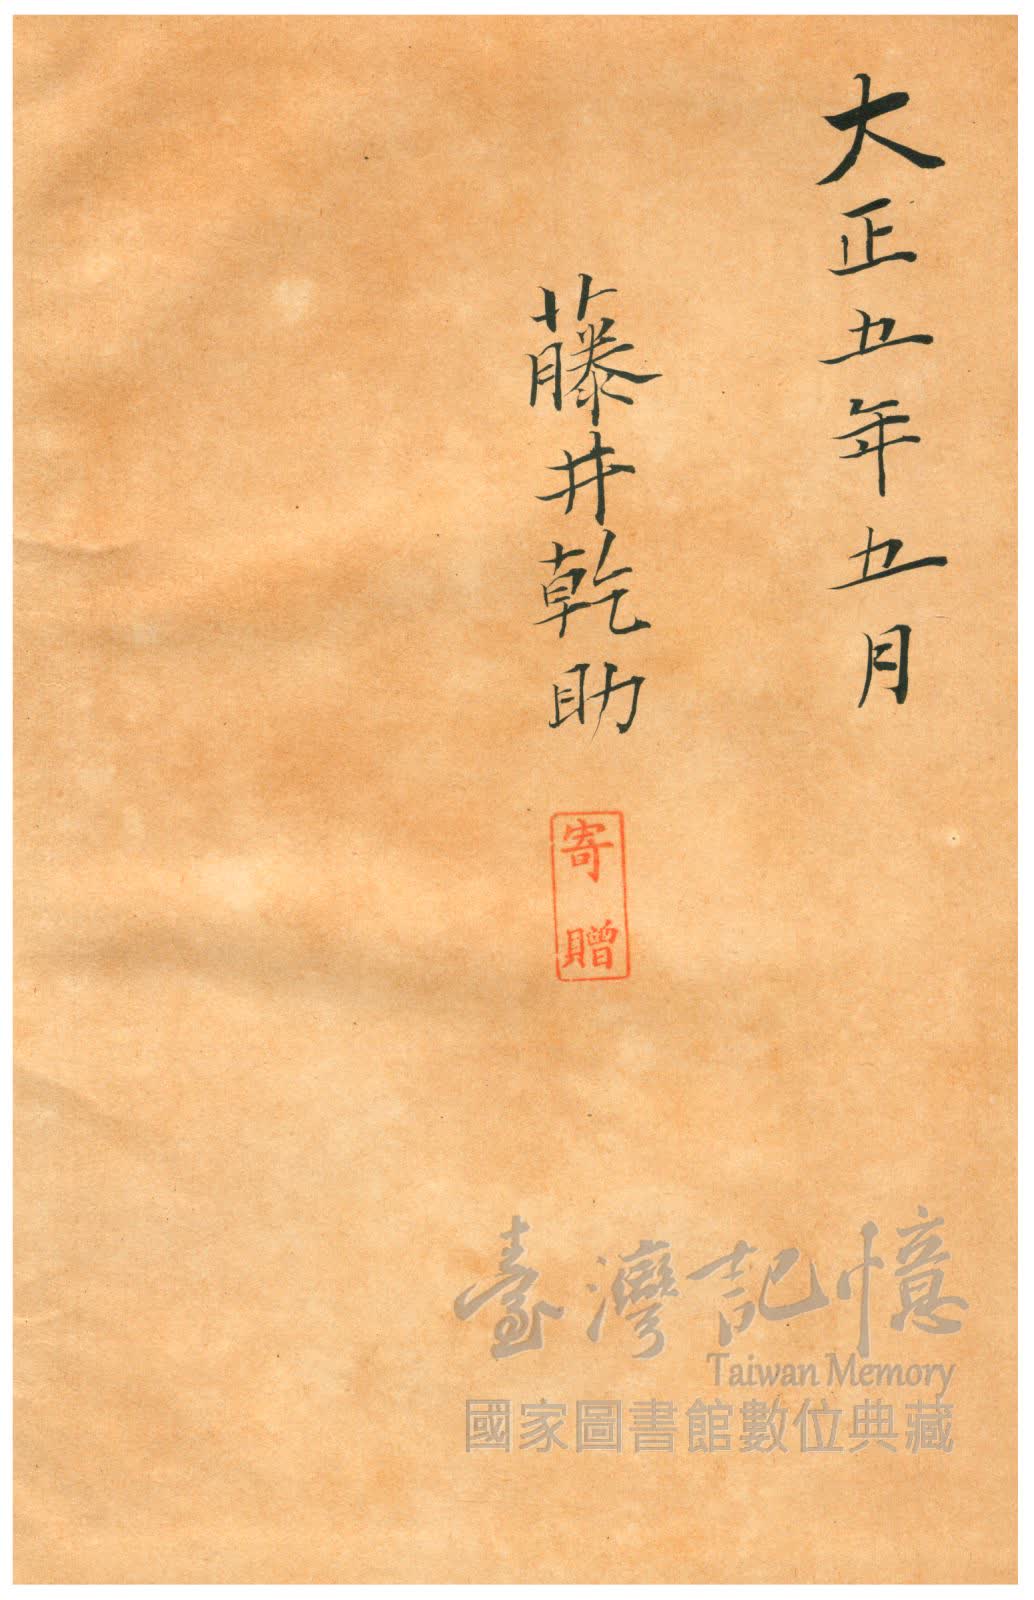 大正五年五月
藤井乾助
寄贈
臺灣記憶
Taiwan Memory
國家圖書館數位典藏